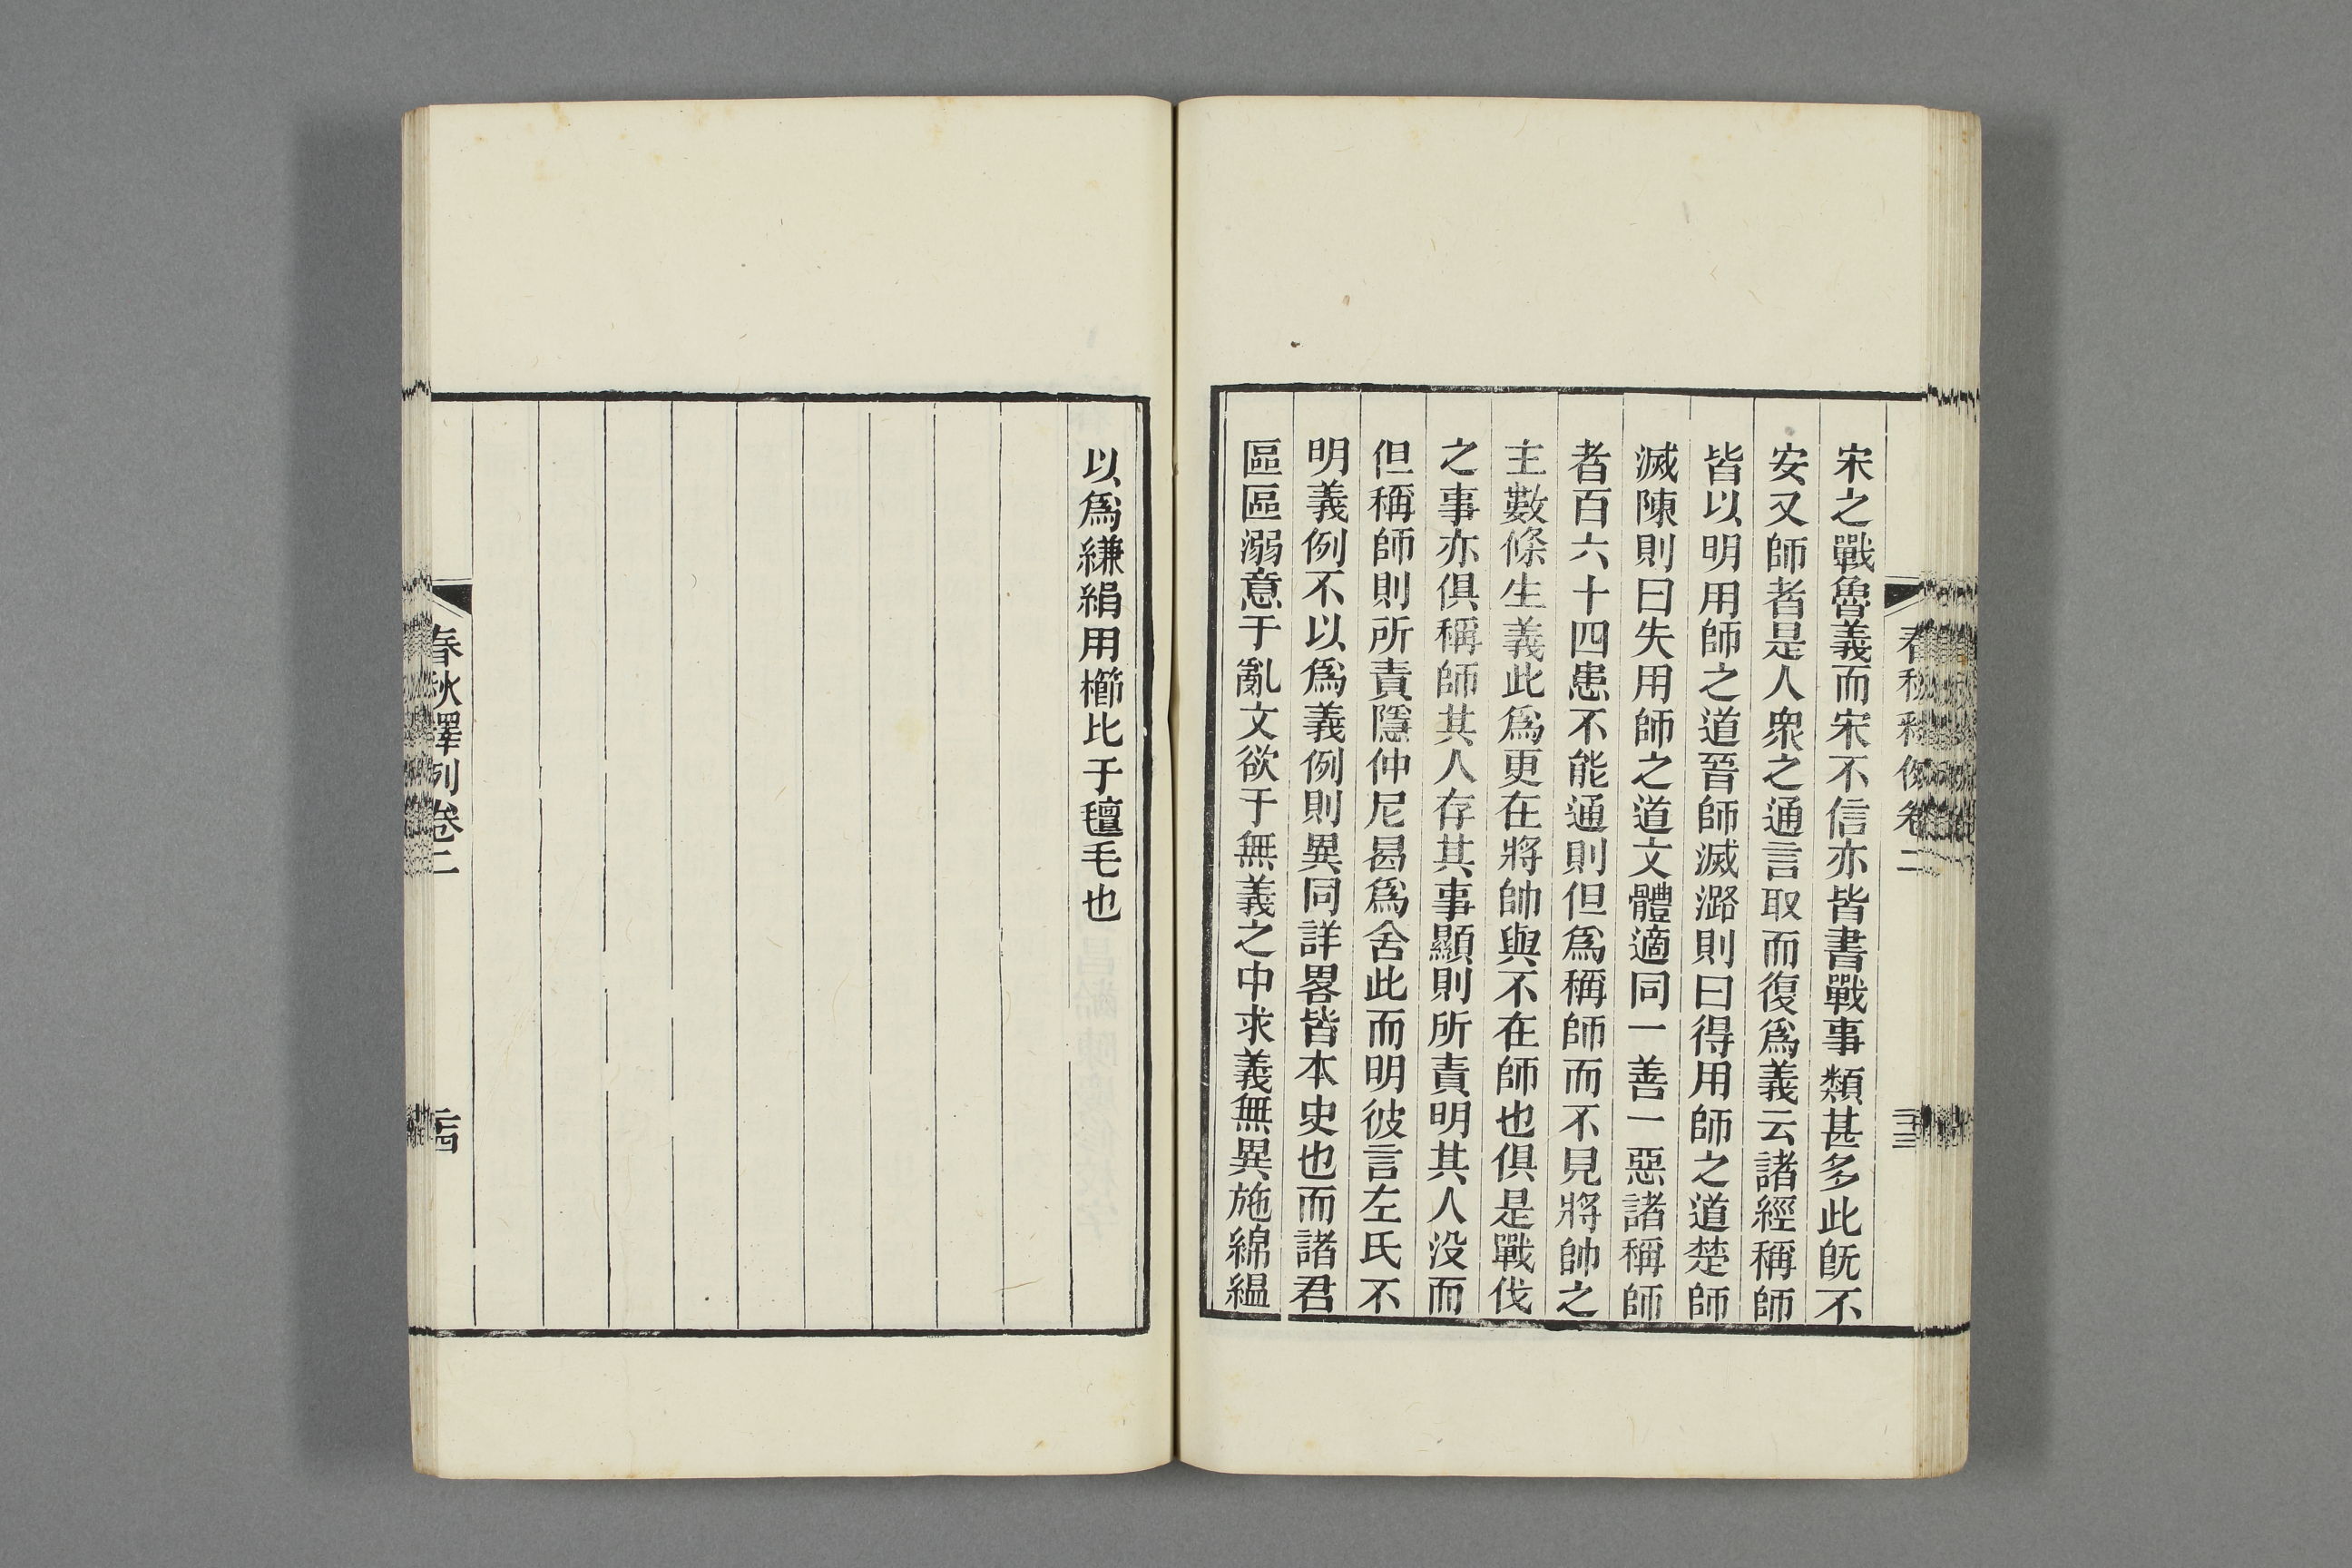 宋之戰魯義而宋不信亦皆書戰事類甚多此既不
安又師者是人衆之通言取而復爲義云諸經稱師
皆以明用師之道晉師滅潞則曰得用師之道楚師
滅陳則曰失用師之道文體適同一善一惡諸稱師
者百六十四患不能通則但爲稱師而不見將帥之
主數條生義此爲更在將帥與不在師也俱是戰伐
之事亦俱稱師其人存其事顯則所責明其人没而
但稱師則所責隱仲尼曷爲舍此而明彼言左氏不
明義例不以爲義例則異同詳畧皆本史也而諸君
區區溺意于亂文欲于無義之中求義無異施綿緼
以爲縑絹用櫛比于氊毛也
春秋釋例卷二